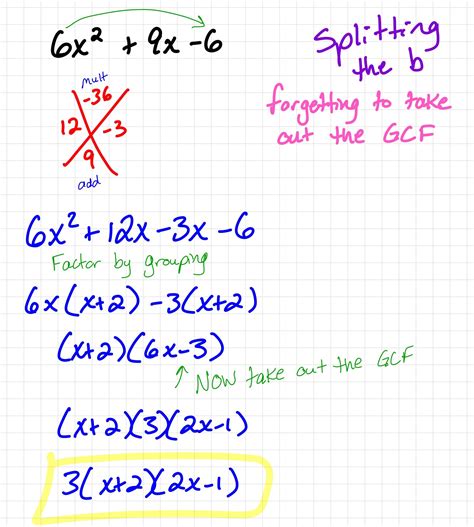 6x² + 9x - 6
Splitting
the b
forgetting to take
out the GCF
mult
-36
12 -3
9
add
6x² + 12x - 3x - 6
Factor by grouping
6x(x+2) - 3(x+2)
(x+2)(6x-3)
Now take out the GCF
(x+2)(3)(2x-1)
3(x+2)(2x-1)